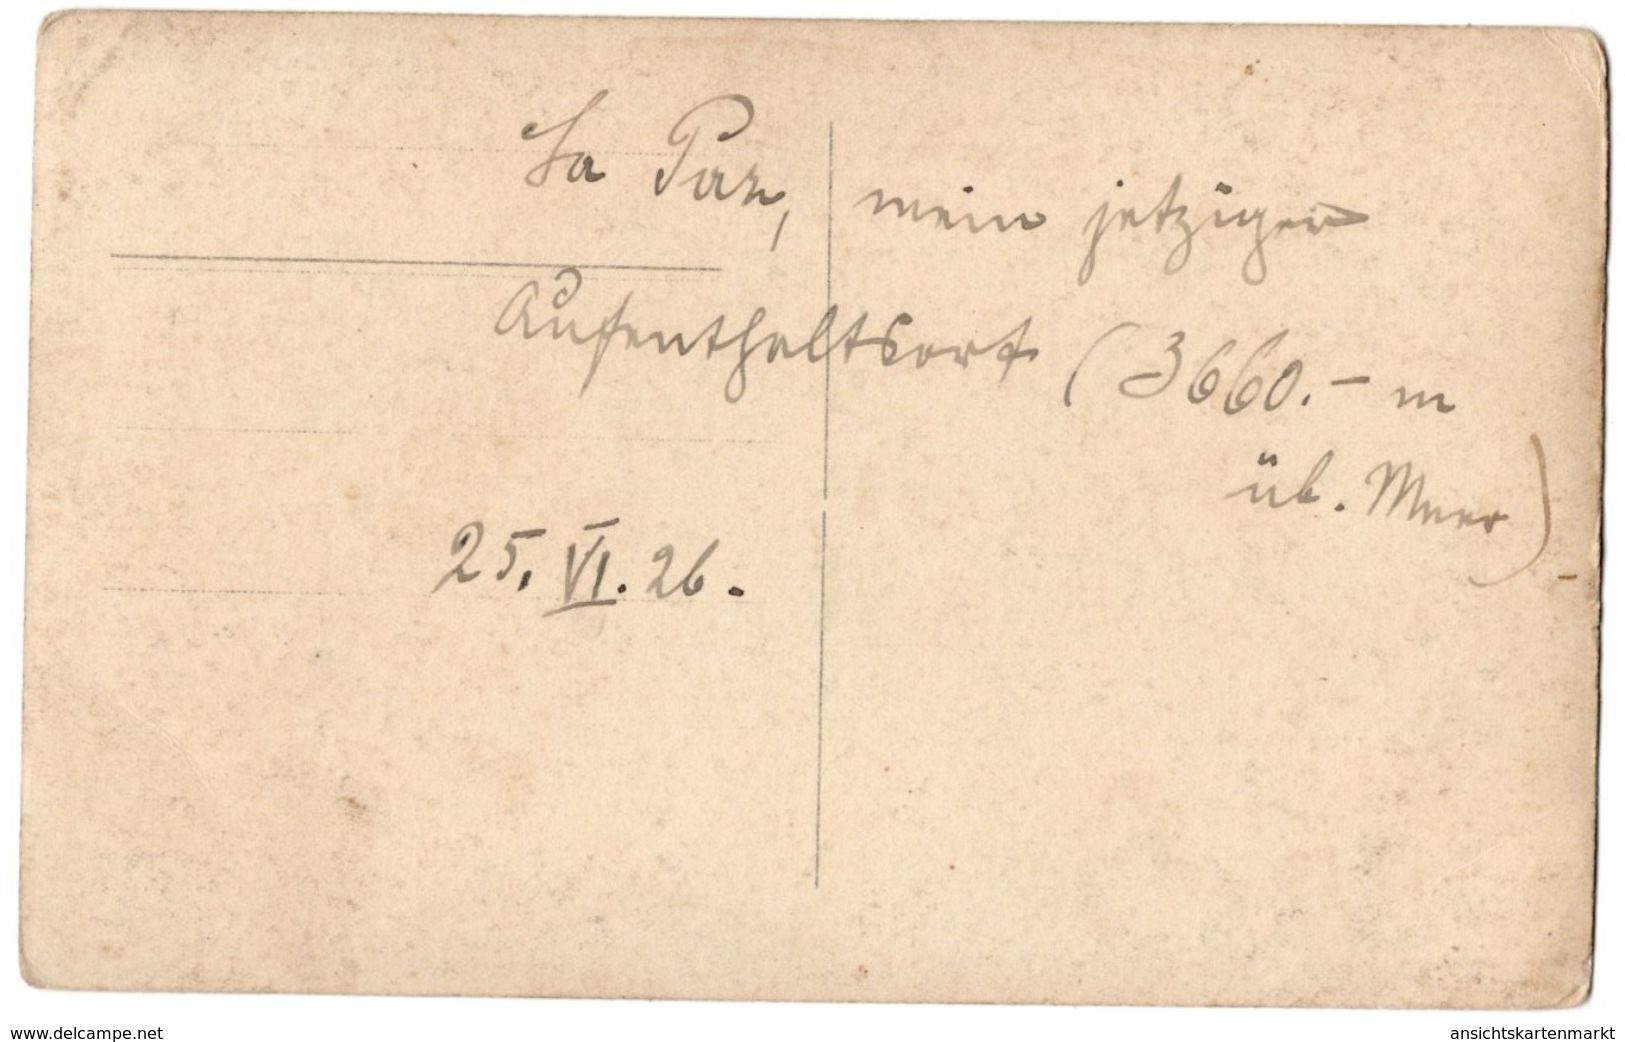 La Paz, mein jetziger
Aufenthaltsort (3660.– m
üb. Meer)
25. VI. 26.
www.delcampe.net
ansichtskartenmarkt